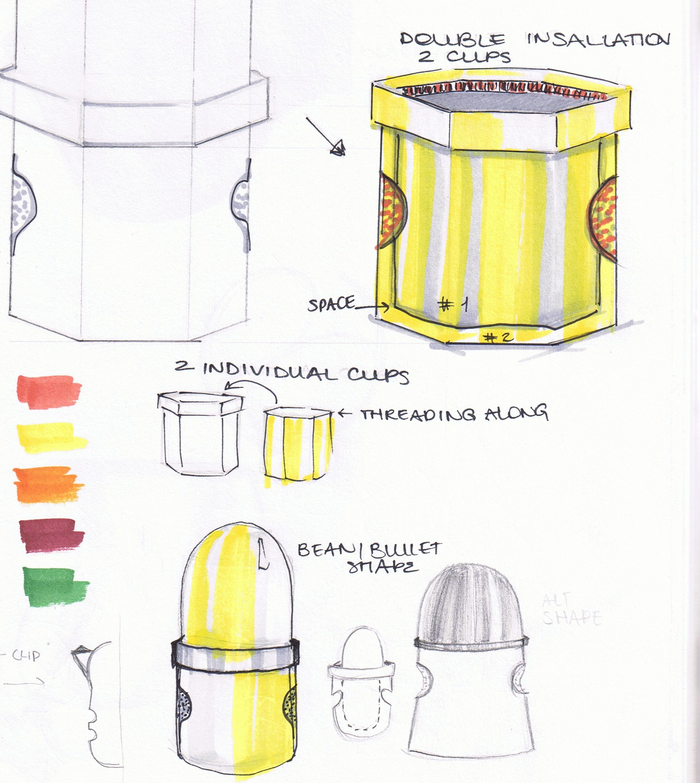 DOUBLE INSALLATION
2 CUPS
SPACE
# 1
# 2
2 INDIVIDUAL CUPS
THREADING ALONG
BEAN/BULLET
SHAPE
ALT
SHAPE
- CLIP